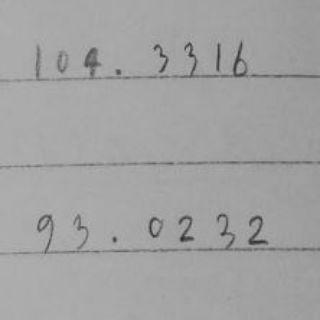 104.3316
93.0232